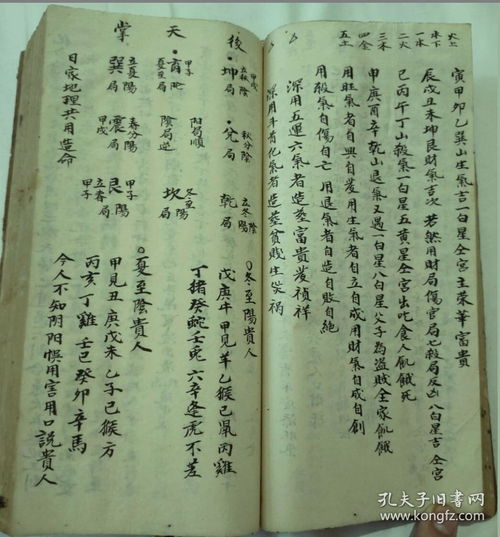 寅甲卯乙巽山生氣吉一白星仝宮主荣華富貴
辰戌丑未坤艮財氣吉次若然用財局傷官局七殺局反凶八白星吉仝宮
巳丙午丁山殺氣一白星五黄星仝宮出吃食人飢餓死
申庚酉辛乾山退氣又遇一白星八白星父子為盗賊全家飢餓
用旺氣者自興自发用生氣者自立自成用財氣自成自創
用殺氣自傷自亡用退氣者自造自敗自絕
深用五運六氣者造塟富貴发禎祥
深用斗首化氣者造塟貧賤生災禍
火上
水下
一水
二火
三木
四金
五土
後天掌
坤局
甲戌
立秋陰
兌局
秋分陰
乾局
立冬陰陽
離
甲子
夏至局
陽局順
陰局逆
坎局
冬至陽
巽局
立夏陽
甲戌
震局
春分陽
甲子
艮局
立春陽
日家地理共用造命
○冬至陽貴人
戊庚牛甲見羊乙猴己鼠丙雞
丁猪癸蛇壬兎六辛逢虎不差
○夏至陰貴人
甲見丑庚戊未乙子己猴方
丙亥丁雞壬巳癸卯辛馬
今人不知阴阳悞用害用口說貴人
孔夫子旧書网
www.kongfz.com